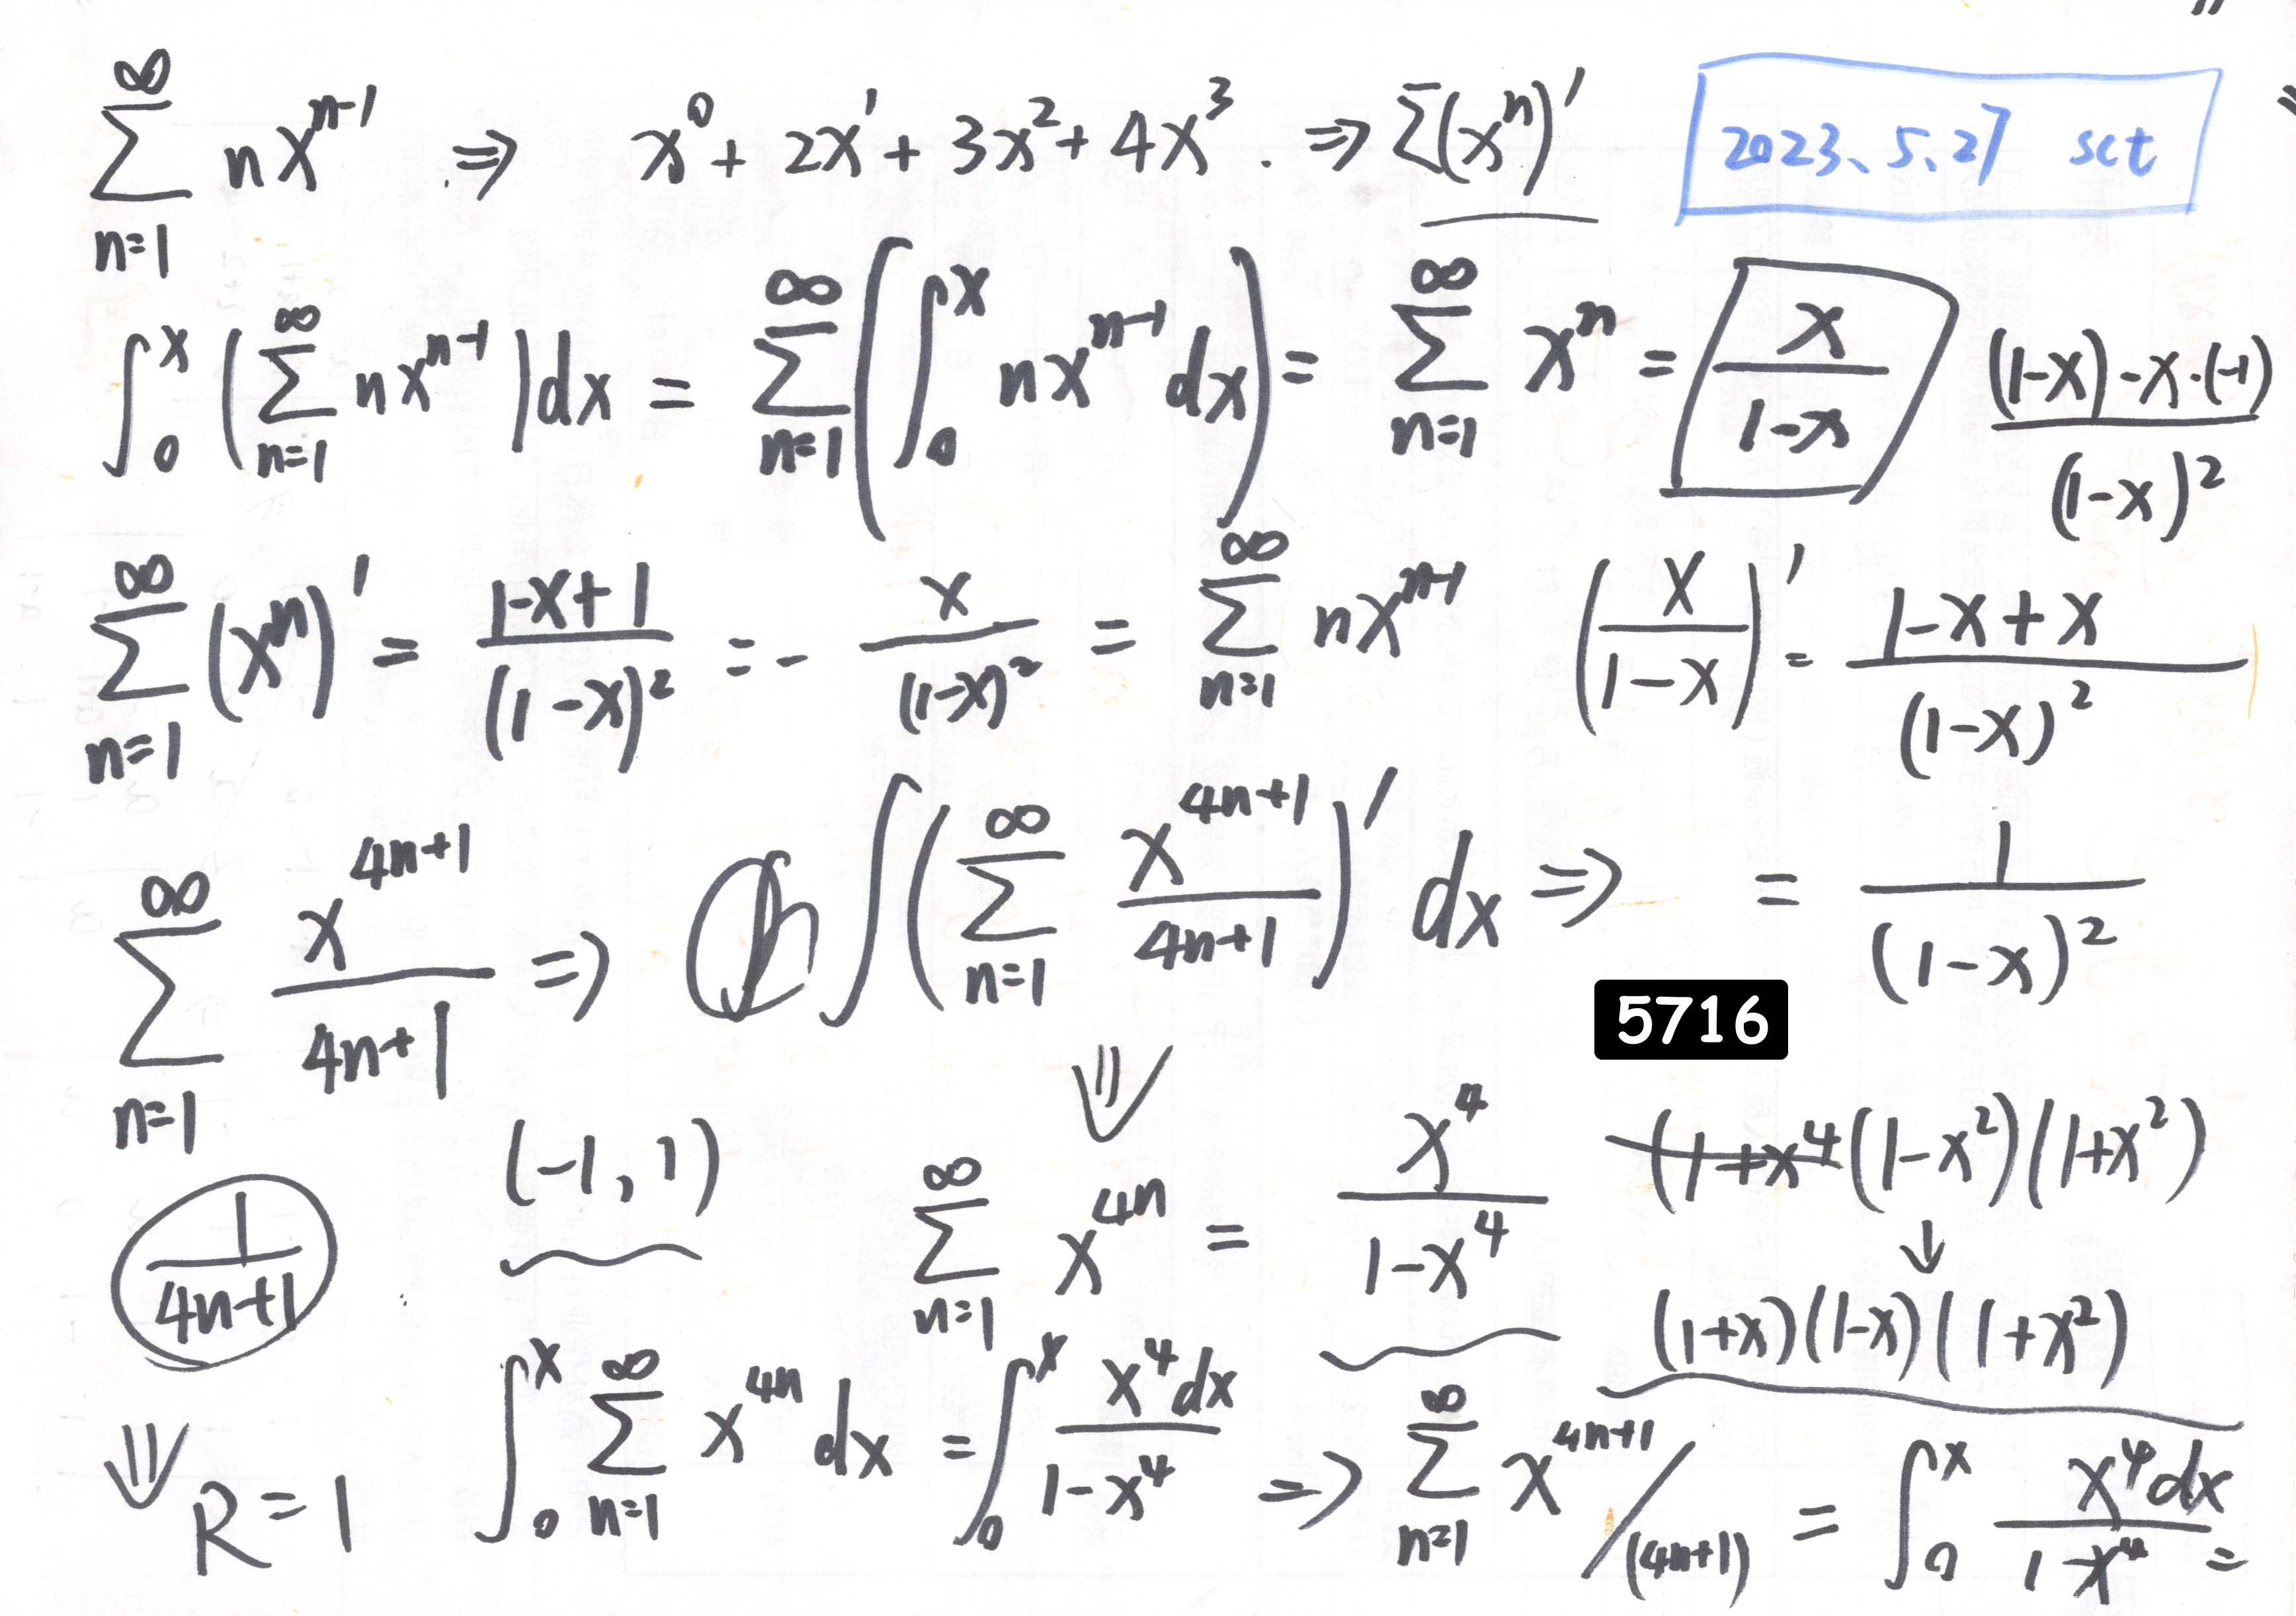 ∑_{n=1}^{∞} nx^{n-1} ⇒ x^0 + 2x^1 + 3x^2 + 4x^3 . ⇒ ∑(x^n)′
2023、5.27 sct
∫_0^x (∑_{n=1}^{∞} nx^{n-1})dx = ∑_{n=1}^{∞} (∫_0^x nx^{n-1}dx) = ∑_{n=1}^{∞} x^n = x/(1-x)
((1-x)-x·(-1))/(1-x)^2
∑_{n=1}^{∞} (x^n)′ = (1-x+1)/(1-x)^2 = - x/(1-x)^2 = ∑_{n=1}^{∞} nx^{n-1}
(x/(1-x))′ = (1-x+x)/(1-x)^2
= 1/(1-x)^2
∑_{n=1}^{∞} x^{4n+1}/(4n+1) ⇒ ∫(∑_{n=1}^{∞} x^{4n+1}/(4n+1))′ dx ⇒
5716
1/(4n+1)
(-1, 1)
⇓
∑_{n=1}^{∞} x^{4n} = x^4/(1-x^4)
(1+x^4 (1-x^2)(1+x^2)
↓
(1+x)(1-x)(1+x^2)
⇓ R=1
∫_0^x ∑_{n=1}^{∞} x^{4n} dx = ∫_0^x x^4dx/(1-x^4) ⇒ ∑_{n=1}^{∞} x^{4n+1}/(4n+1) = ∫_0^x x^4dx/(1-x^4) =